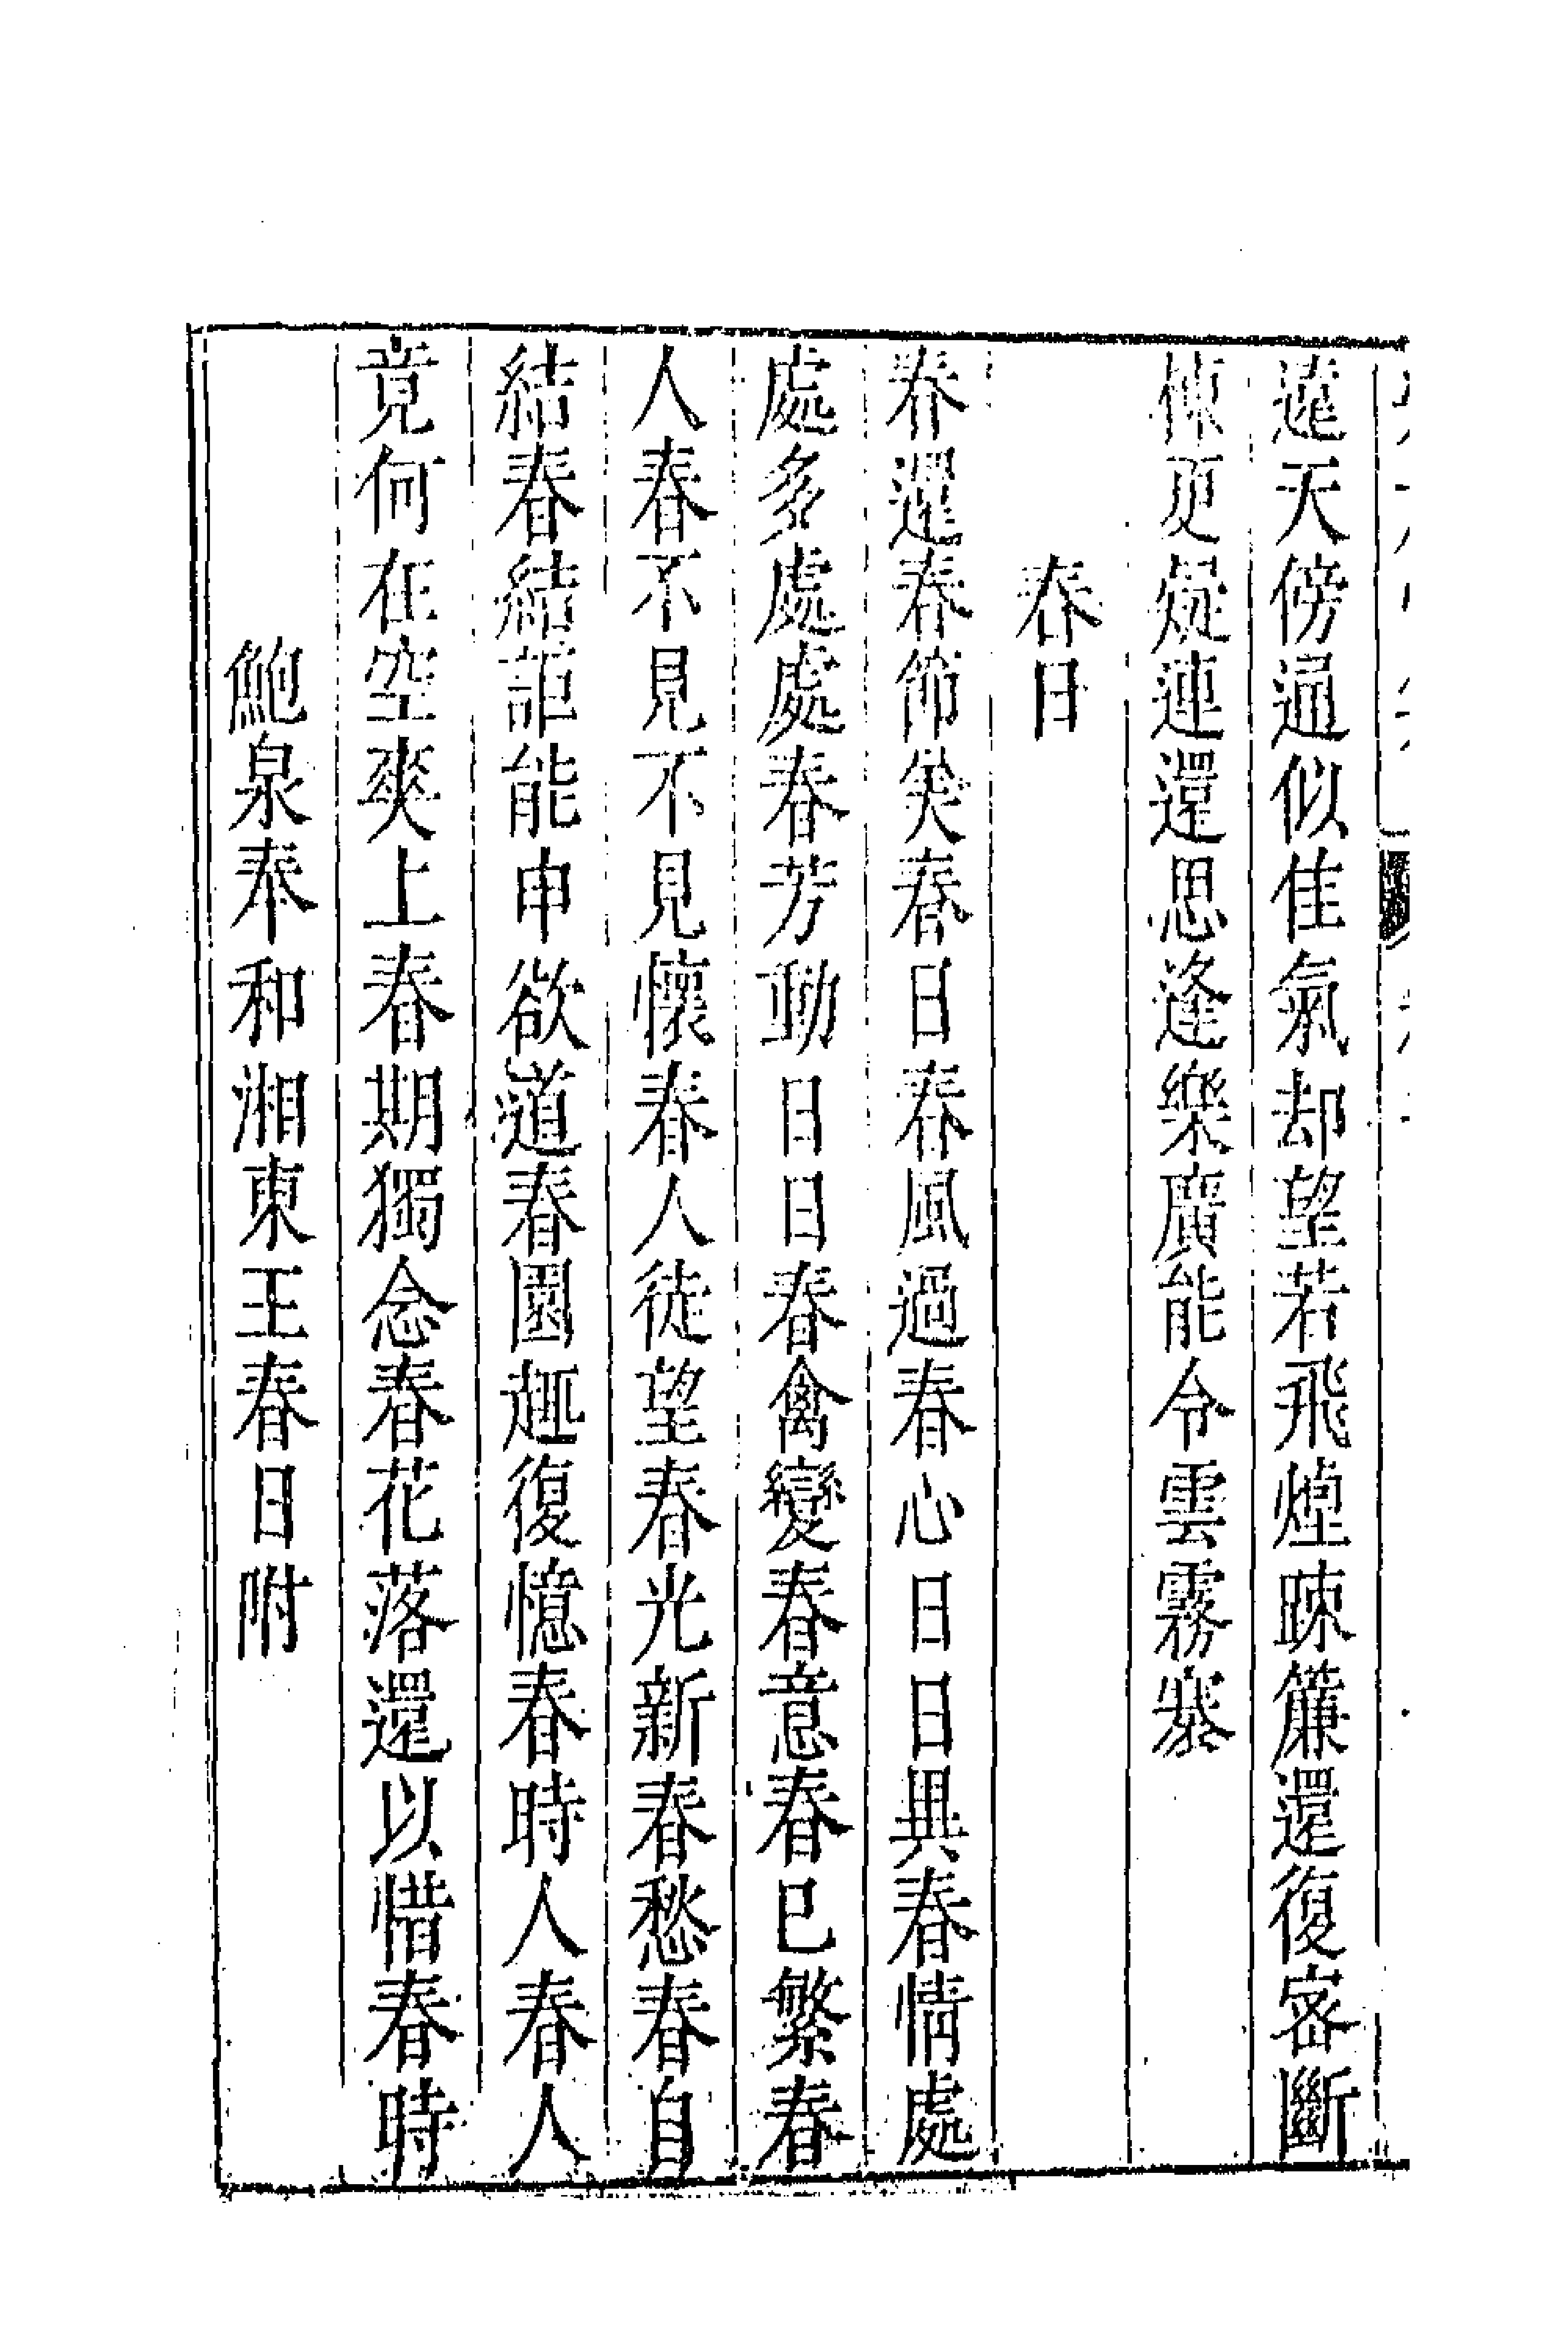 遠天傍通似佳氣却望若飛煙踈簾還復密斷
棟更疑連還思逢樂廣能令雲霧褰
春日
春還春節美春日春風過春心日日異春情處
處多處處春芳動日日春禽變春意春已繁春
人春不見不見懷春人徒望春光新春愁春自
結春結詎能申欲道春園趣復憶春時人春人
竟何在空爽上春期獨念春花落還以惜春時
鮑泉奉和湘東王春日附